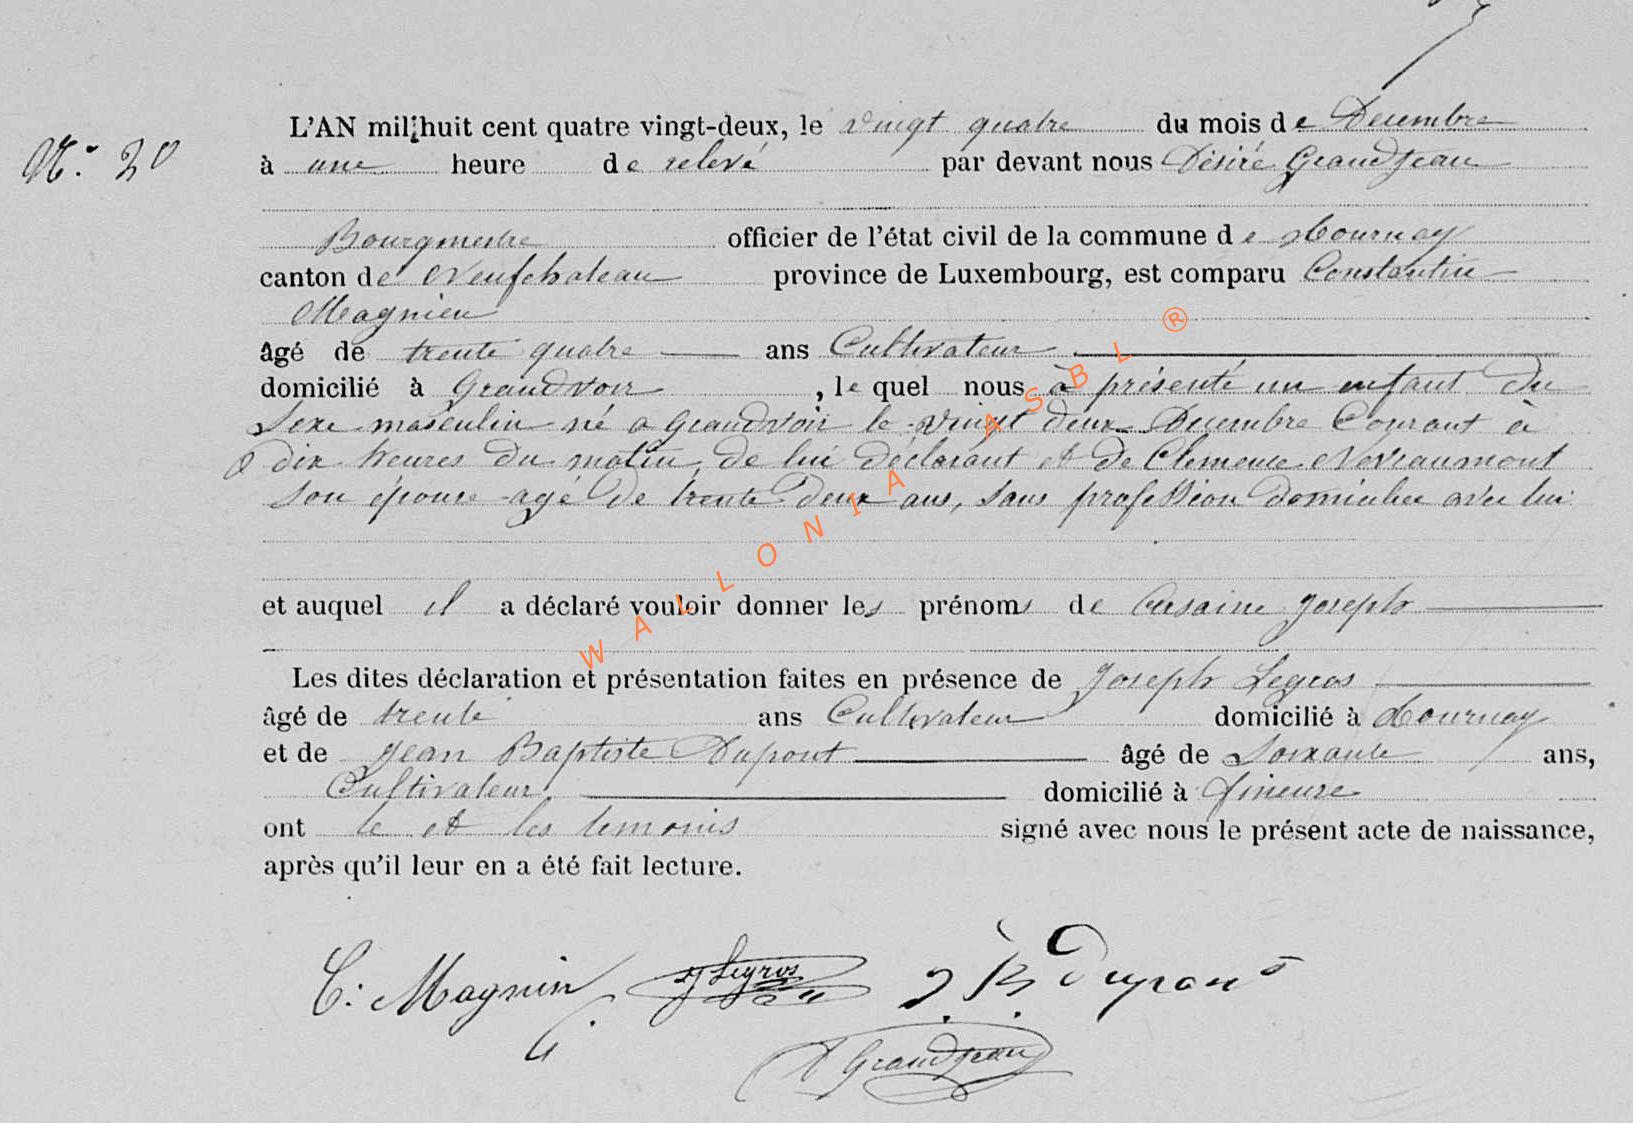 N° 20
L'AN mil huit cent quatre vingt-deux, le vingt quatre du mois de Decembre
à une heure de relevé par devant nous Désiré Grandjean
Bourgmestre officier de l'état civil de la commune de Tournay
canton de Neufchateau province de Luxembourg, est comparu Constantin
Magnien
âgé de trente quatre ans Cultivateur
domicilié à Grandvoir, lequel nous à présenté un enfant du
Sexe masculin né a Grandvoir le vingt deux Decembre Courant à
dix heures du matin, de lui déclarant et de Clemence Nevraumont
son épouse agé de trente deux ans, sans profession domiciliee avec lui
et auquel il a déclaré vouloir donner les prénoms de Cesaire Joseph
Les dites déclaration et présentation faites en présence de Joseph Legros
âgé de trente ans Cultivateur domicilié à Tournay
et de Jean Baptiste Dupont âgé de Soixante ans,
Cultivateur domicilié à
ont le et les temoins signé avec nous le présent acte de naissance,
après qu'il leur en a été fait lecture.
C. Magnin J Legros J. B. Dupont
D Grandjean
WALLONIA ASBL ®